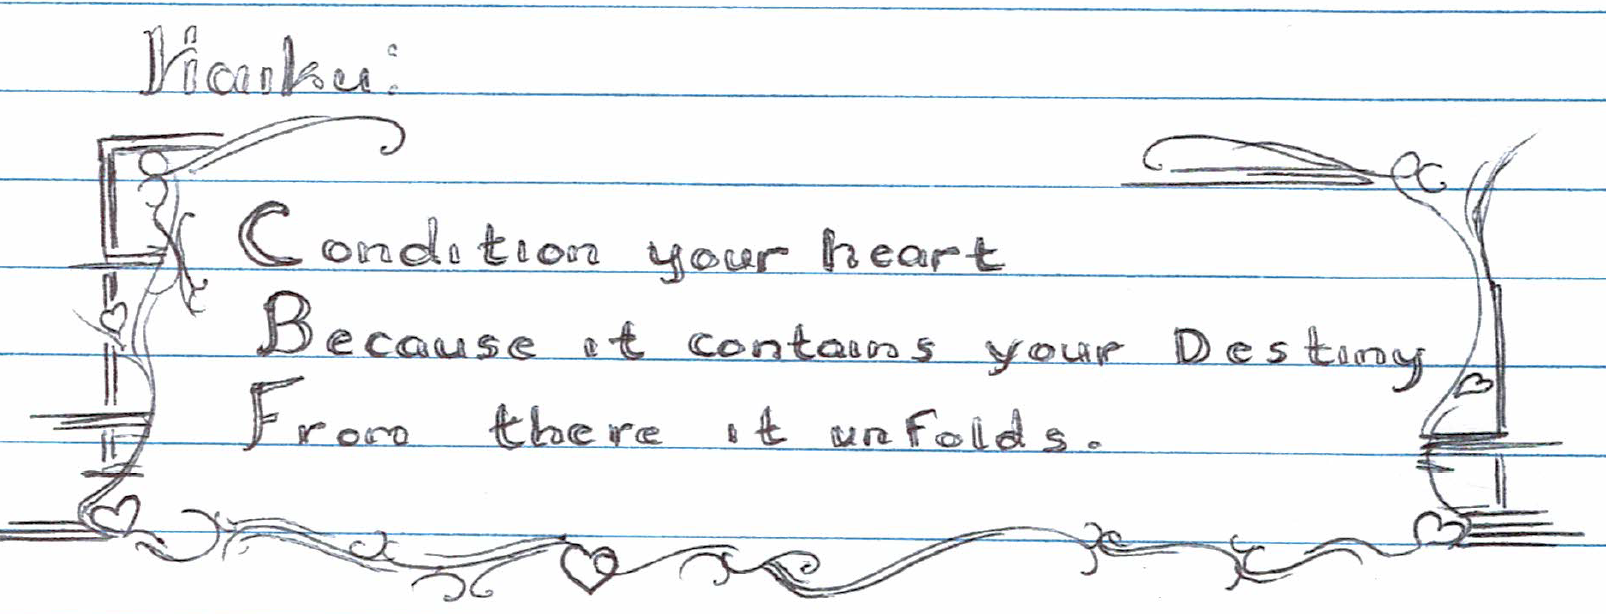 Haiku:
Condition your heart
Because it contains your Destiny
From there it unfolds.